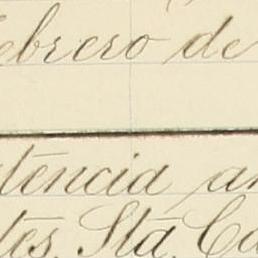 ebrero de
tencia an
tes. Sta. Ca